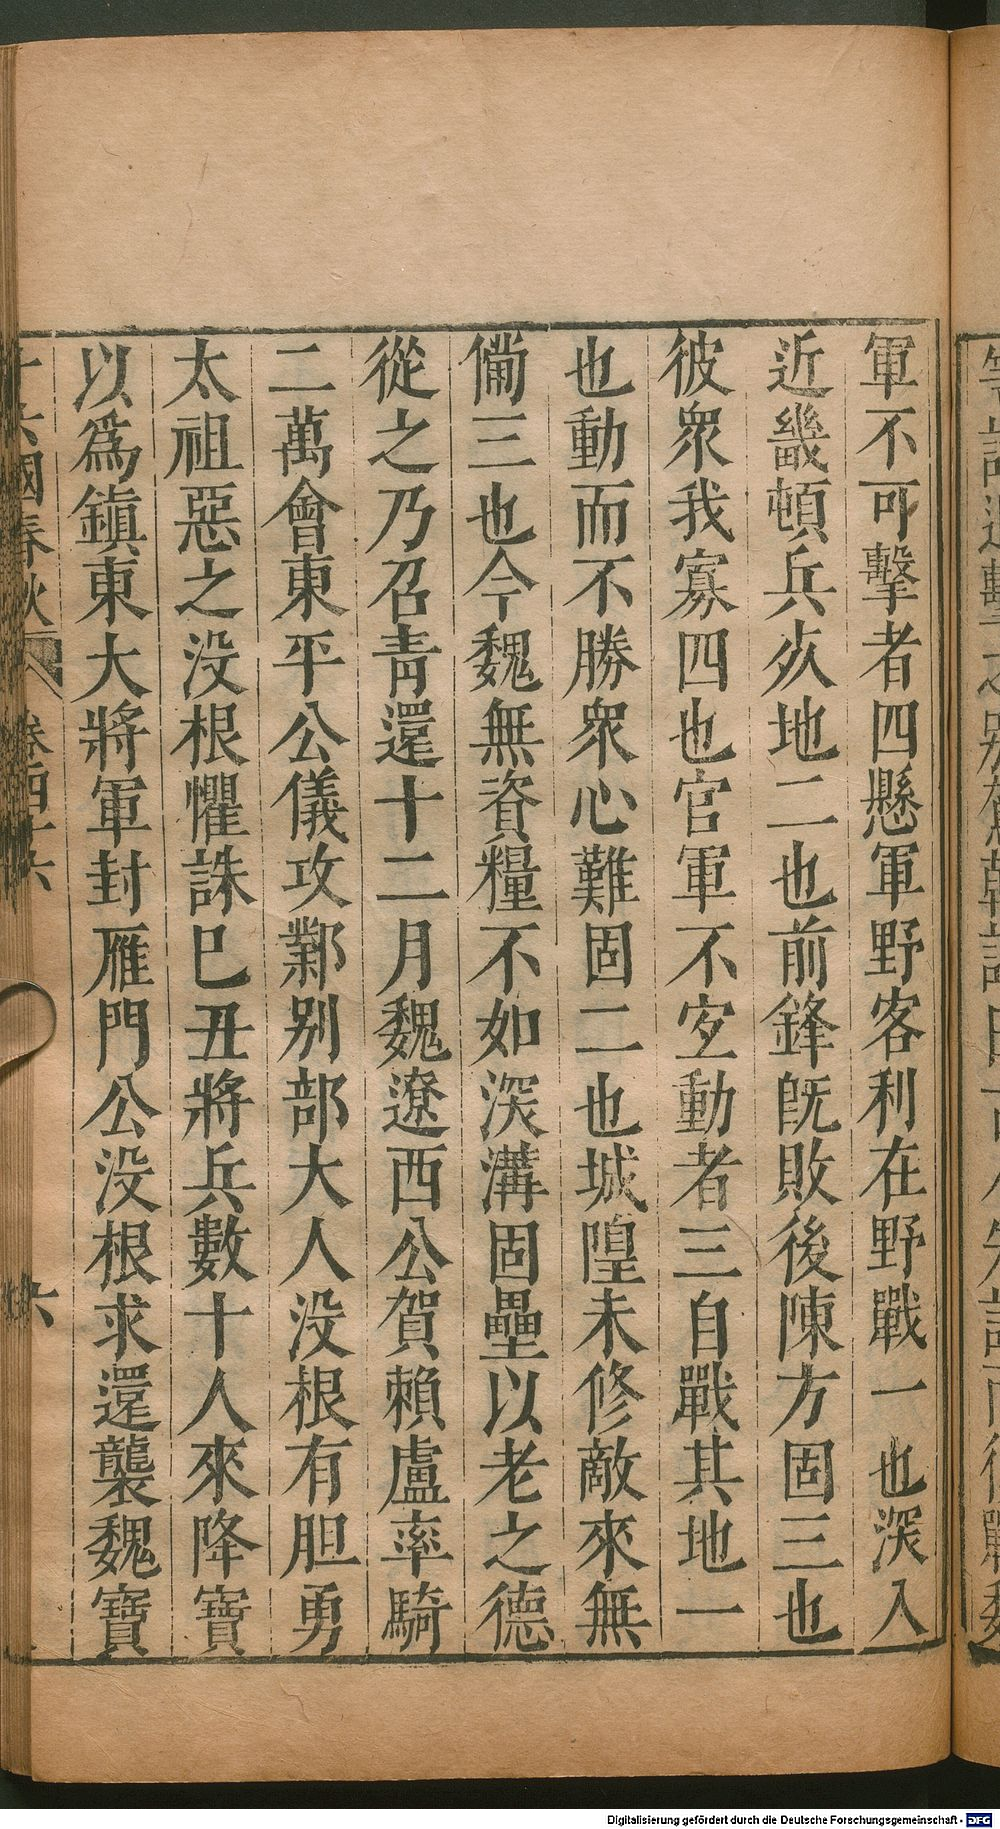 軍不可擊者四懸軍野客利在野戰一也深入
近畿頓兵灰地二也前鋒旣敗後陳方固三也
彼衆我寡四也官軍不宐動者三自戰其地一
也動而不勝衆心難固二也城隍未修敵來無
備三也今魏無資糧不如深溝固壘以老之德
從之乃召靑還十二月魏遼西公賀賴盧率騎
二萬會東平公儀攻鄴别部大人没根有胆勇
太祖惡之没根懼誅巳丑將兵數十人來降寶
以爲鎭東大將軍封雁門公没根求還襲魏寶
十六國春秋 卷四十六 六
Digitalisierung gefördert durch die Deutsche Forschungsgemeinschaft - DFG